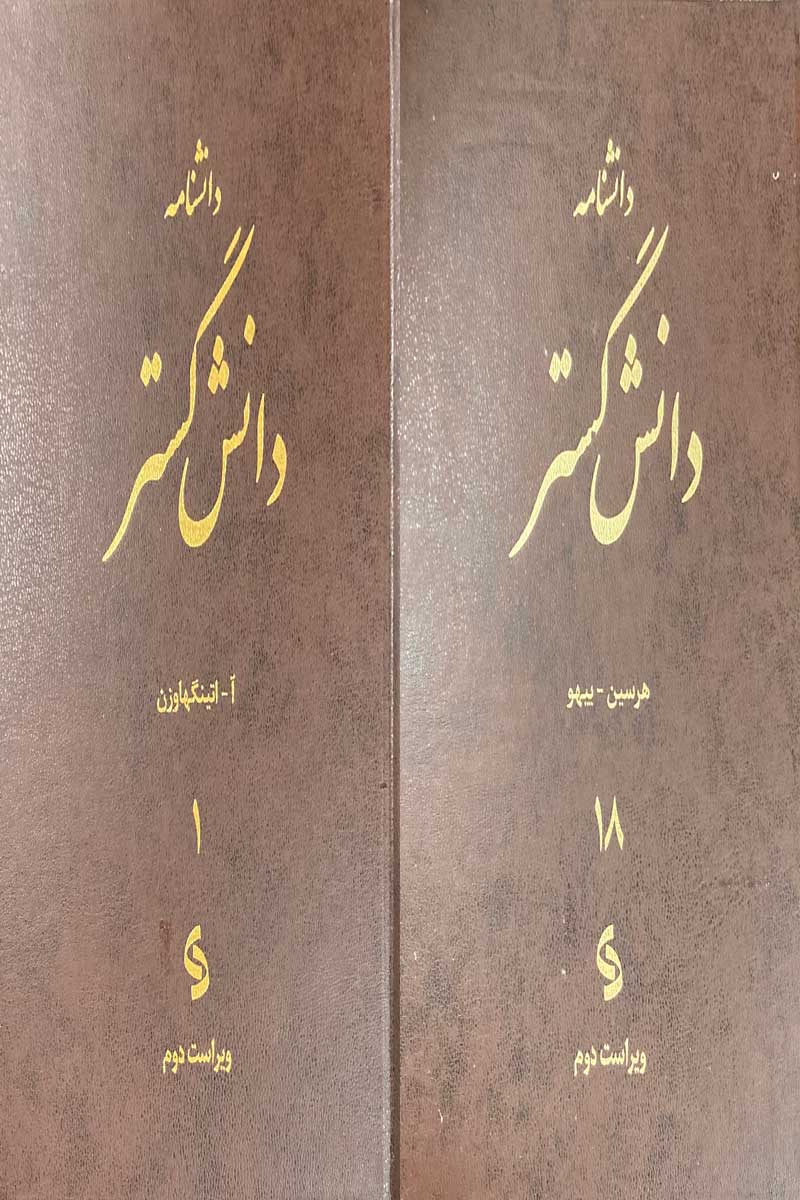 دانشنامه
دانش گستر
هرسین - ییهو
۱۸
ویراست دوم
دانشنامه
دانش گستر
آ - اتینگهاوزن
۱
ویراست دوم